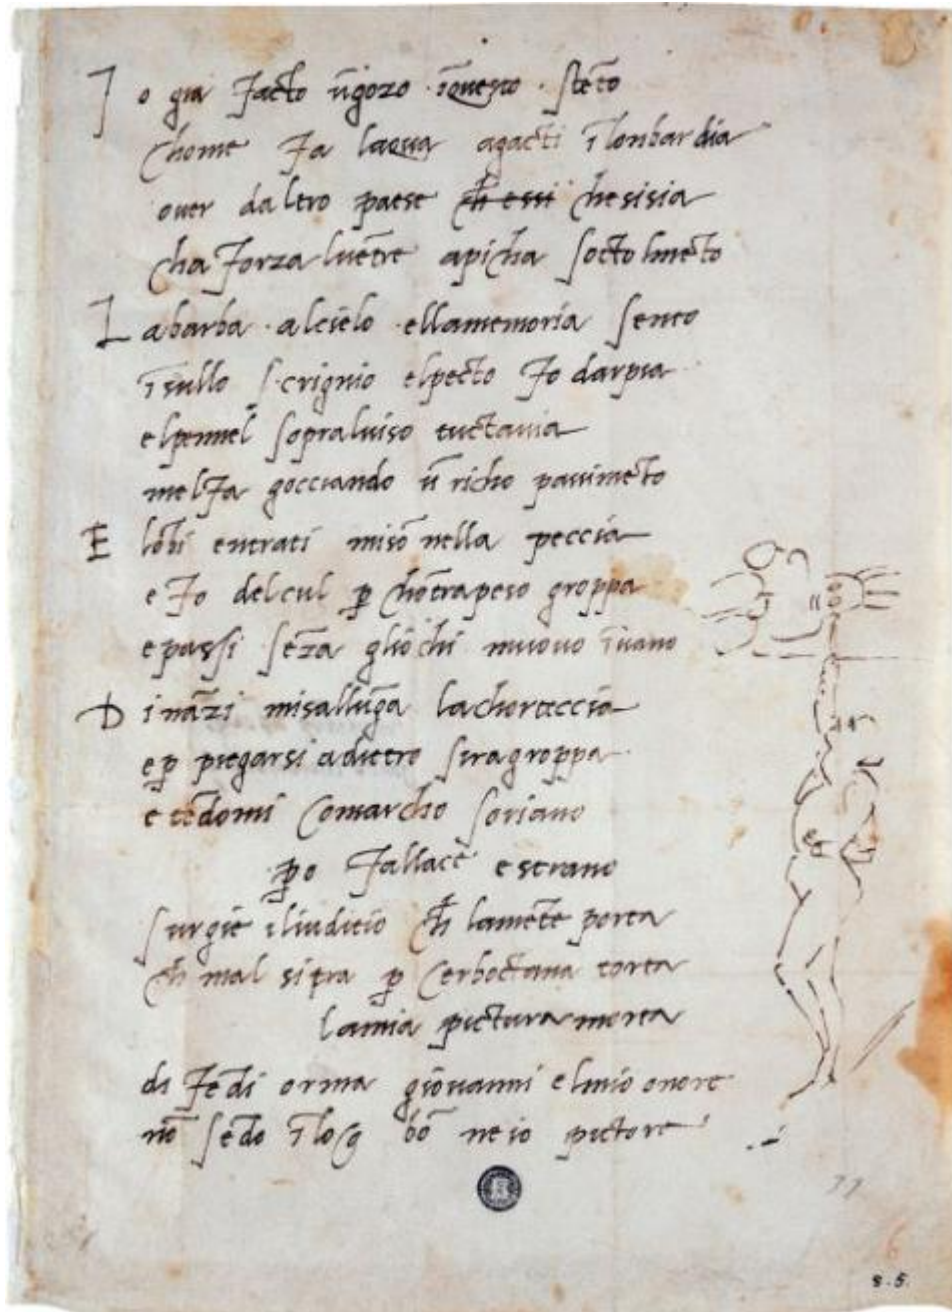 I o gia facto ūgozo īquesto stēto
chome fa laqua agacti ī lonbardia
over daltro paese ch̄ essi chesisia
cha forza lvētre apicha socto lmēto
L abarba alcielo ellamemoria sento
īsullo scrignio elpecto fo darpia
elpennel sopralviso tuctavia
melfa gocciando ū richo pavimēto
E lōbi entrati misō nella peccia
e fo delcul p̱ chōtrapeso groppa
epassi sēza gliochi muovo īvano
D ināzi misallūga lachorteccia
ep̱ piegarsi adietro siragroppa
e tēdomi comarcho soriano
p̱o fallace e strano
surgie iliudicio ch̄ lamēte porta
ch̄ mal sitra p̱ cerboctana torta
lamia pictura morta
di fēdi orma giovanni elmio onore
nō sēdo ī log bō ne io pictore
77
6
8.5.